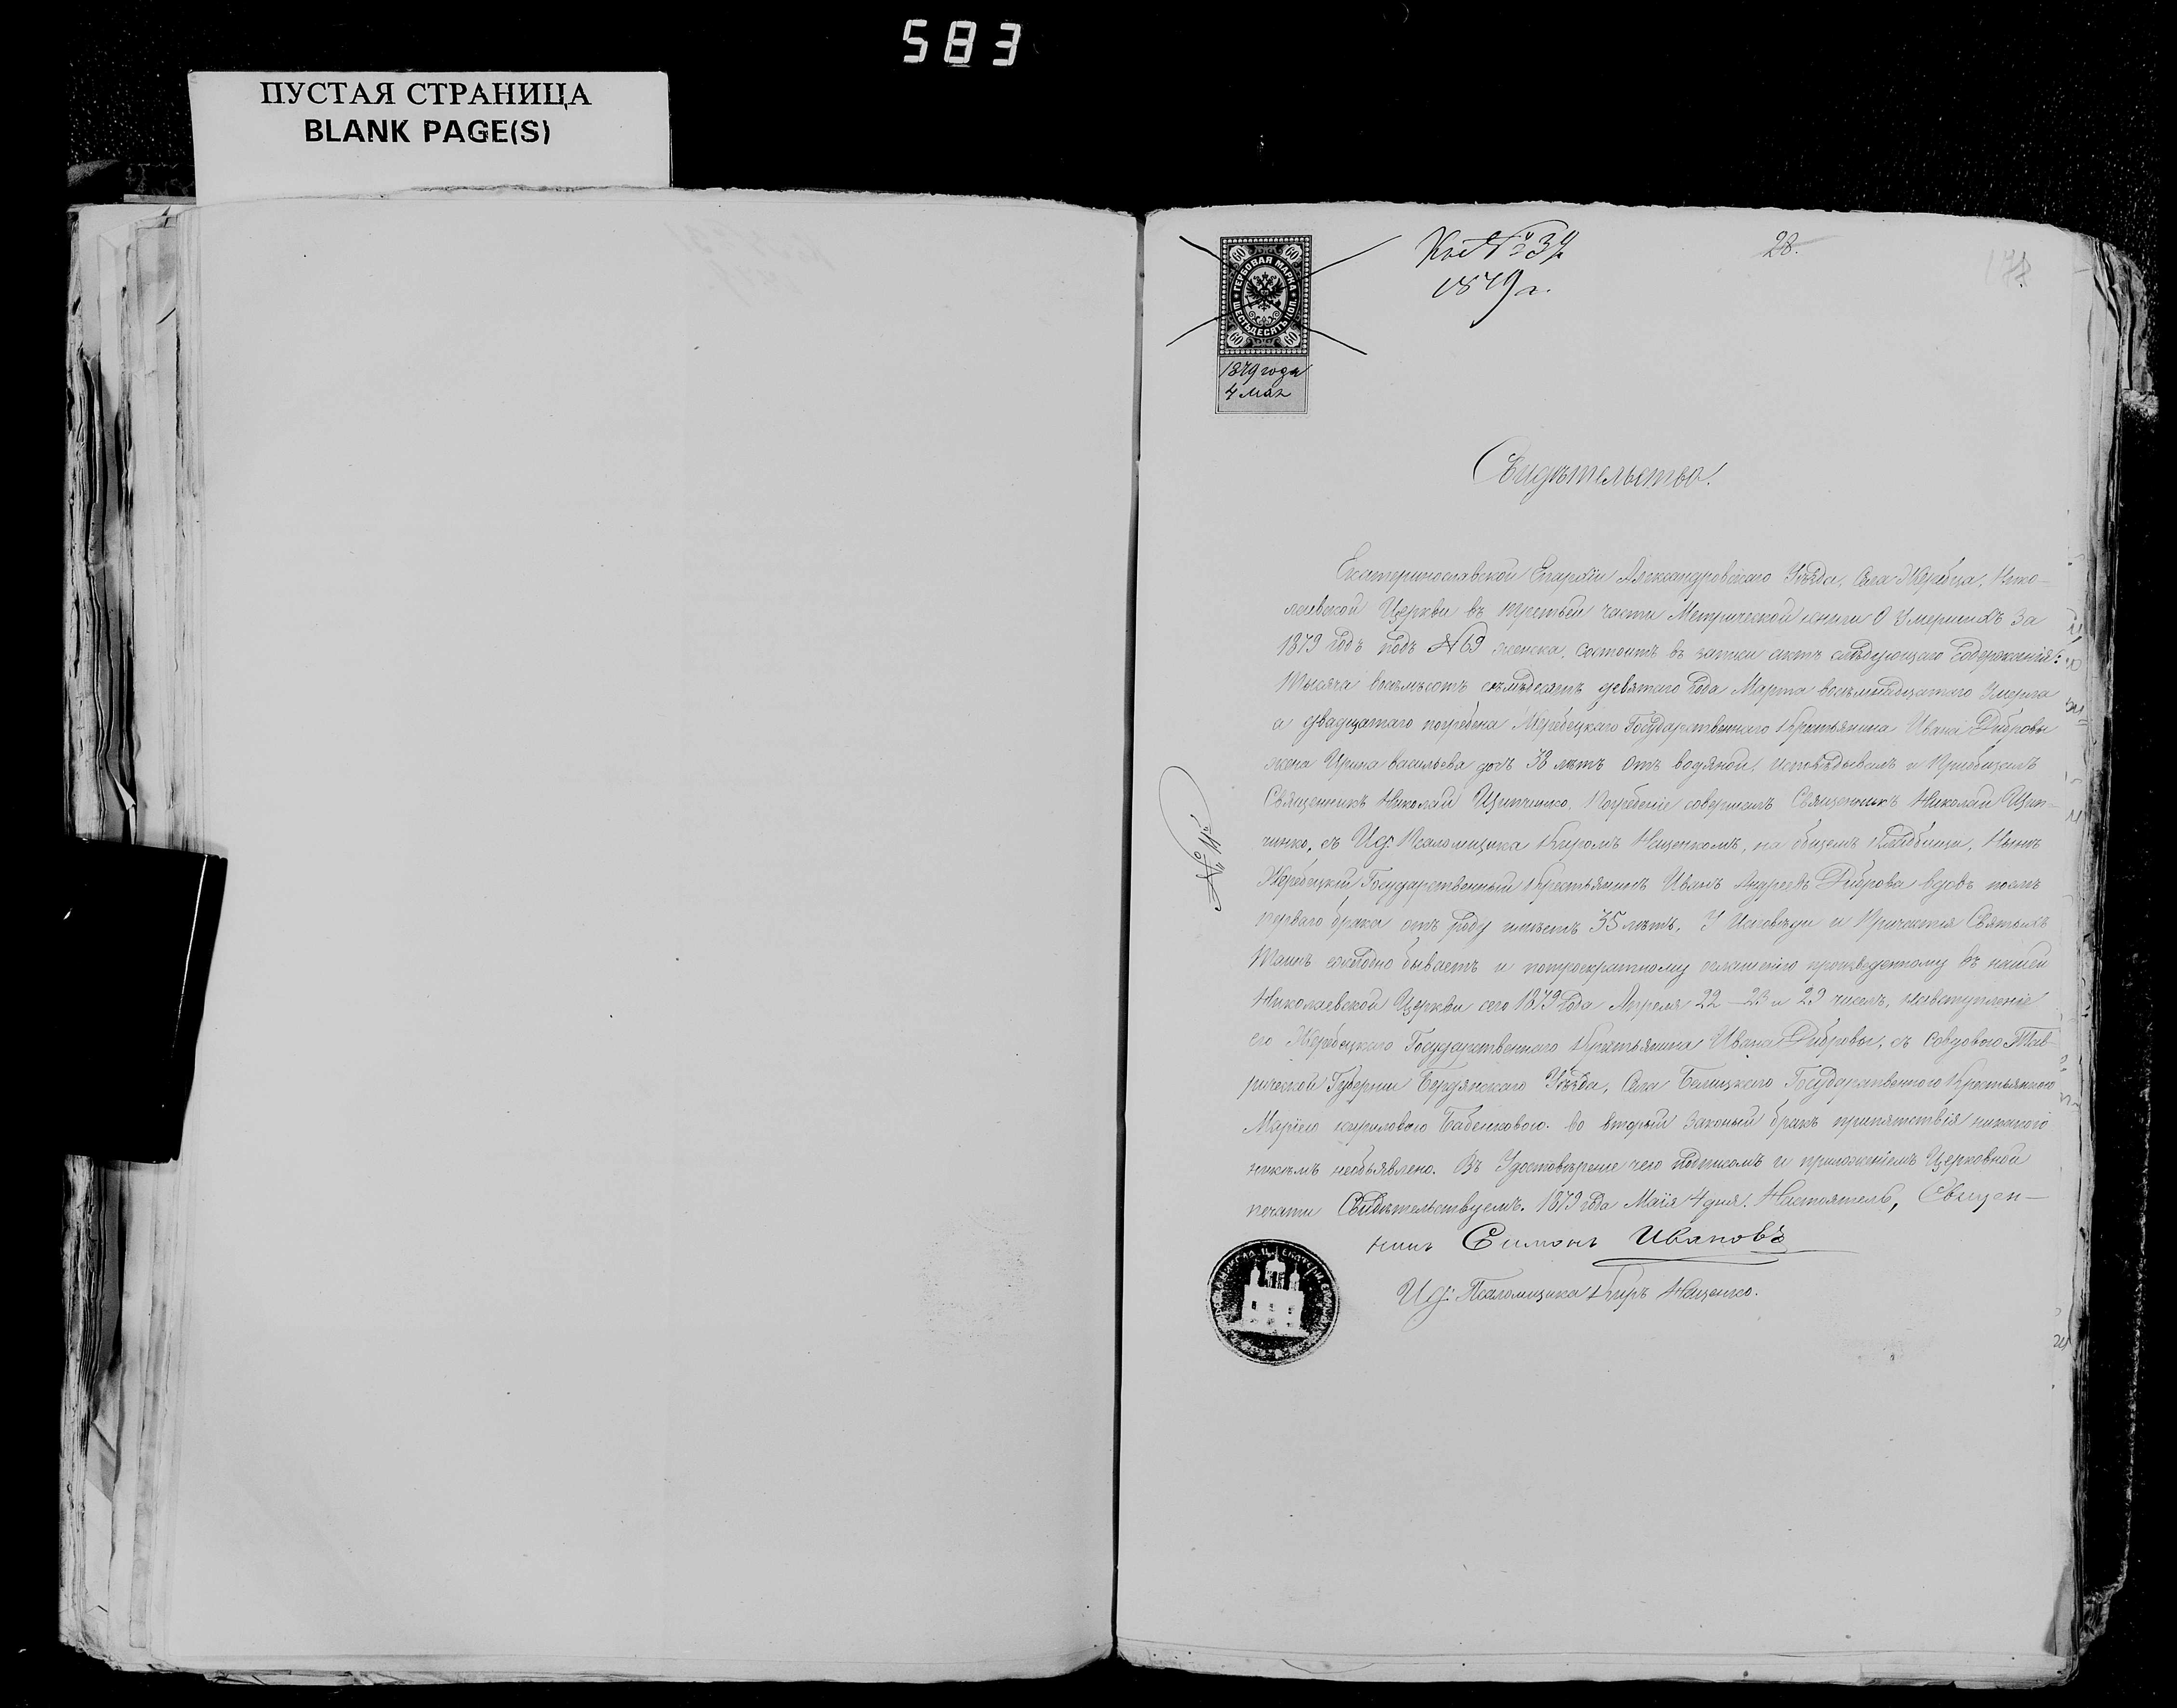 583
ПУСТАЯ СТРАНИЦА
BLANK PAGE(S)
28.
1879 г.
60 60
ГЕРБОВАЯ МАРКА
ШЕСТЬДЕСЯТЬ КОП.
60 60
1879 года
4 мая
Свидѣтельство.
Екатеринославской Епархіи Александровскаго Уѣзда, Села Жеребца, Нико-
лаевской Церкви въ третьей части Метрической книги О Умершихъ За
1879 годъ подъ № 69 женска, состоитъ въ записи актъ слѣдующаго Содержанія:
Тысяча восемьсотъ семьдесятъ девятаго года Марта восемнадцатого Умерла
а двадцатаго погребена Жеребецкаго Государственнаго Крестьянина Ивана Дибровы
жена Ирина Васильева дочь 38 лѣтъ Отъ водяной. исповѣдывалъ и Пріобщалъ
Священникъ Николай Погребеніе совершалъ Священникъ Николай
съ И. д. Псаломщика Киромъ Нещенкомъ, на общемъ Кладбищѣ, Нынѣ
Жеребецкій Государственный Крестьянинъ Иванъ Андреевъ Диброва вдовъ послѣ
перваго брака отъ роду имѣетъ 35 лѣтъ, У Исповѣди и Причастія Святыхъ
Таинъ ежегодно бываетъ и потроекратному оглашенію произведенному въ нашей
Николаевской Церкви сего 1879 Года Апреля 22 – 23 и 29 чиселъ, навступленіе
его Жеребецкаго Государственнаго Крестьянина Ивана Дибровы, съ Совдовою Тав-
рической Губерніи Бердянскаго Уѣзда, Села Государственнаго Крестьянкою
Маріею Кириловою Бабенковою. во вторый Законый бракъ припятствія никакого
никѣмъ необъявлено. Въ Удостовѣреніе чего подписомъ и приложеніемъ Церковной
печати Свидѣтельствуемъ. 1879 года Маія 4 дня. Настоятель, Священ-
никъ Симонъ Ивановъ
И. д. Псаломщика Киръ Нещенко.